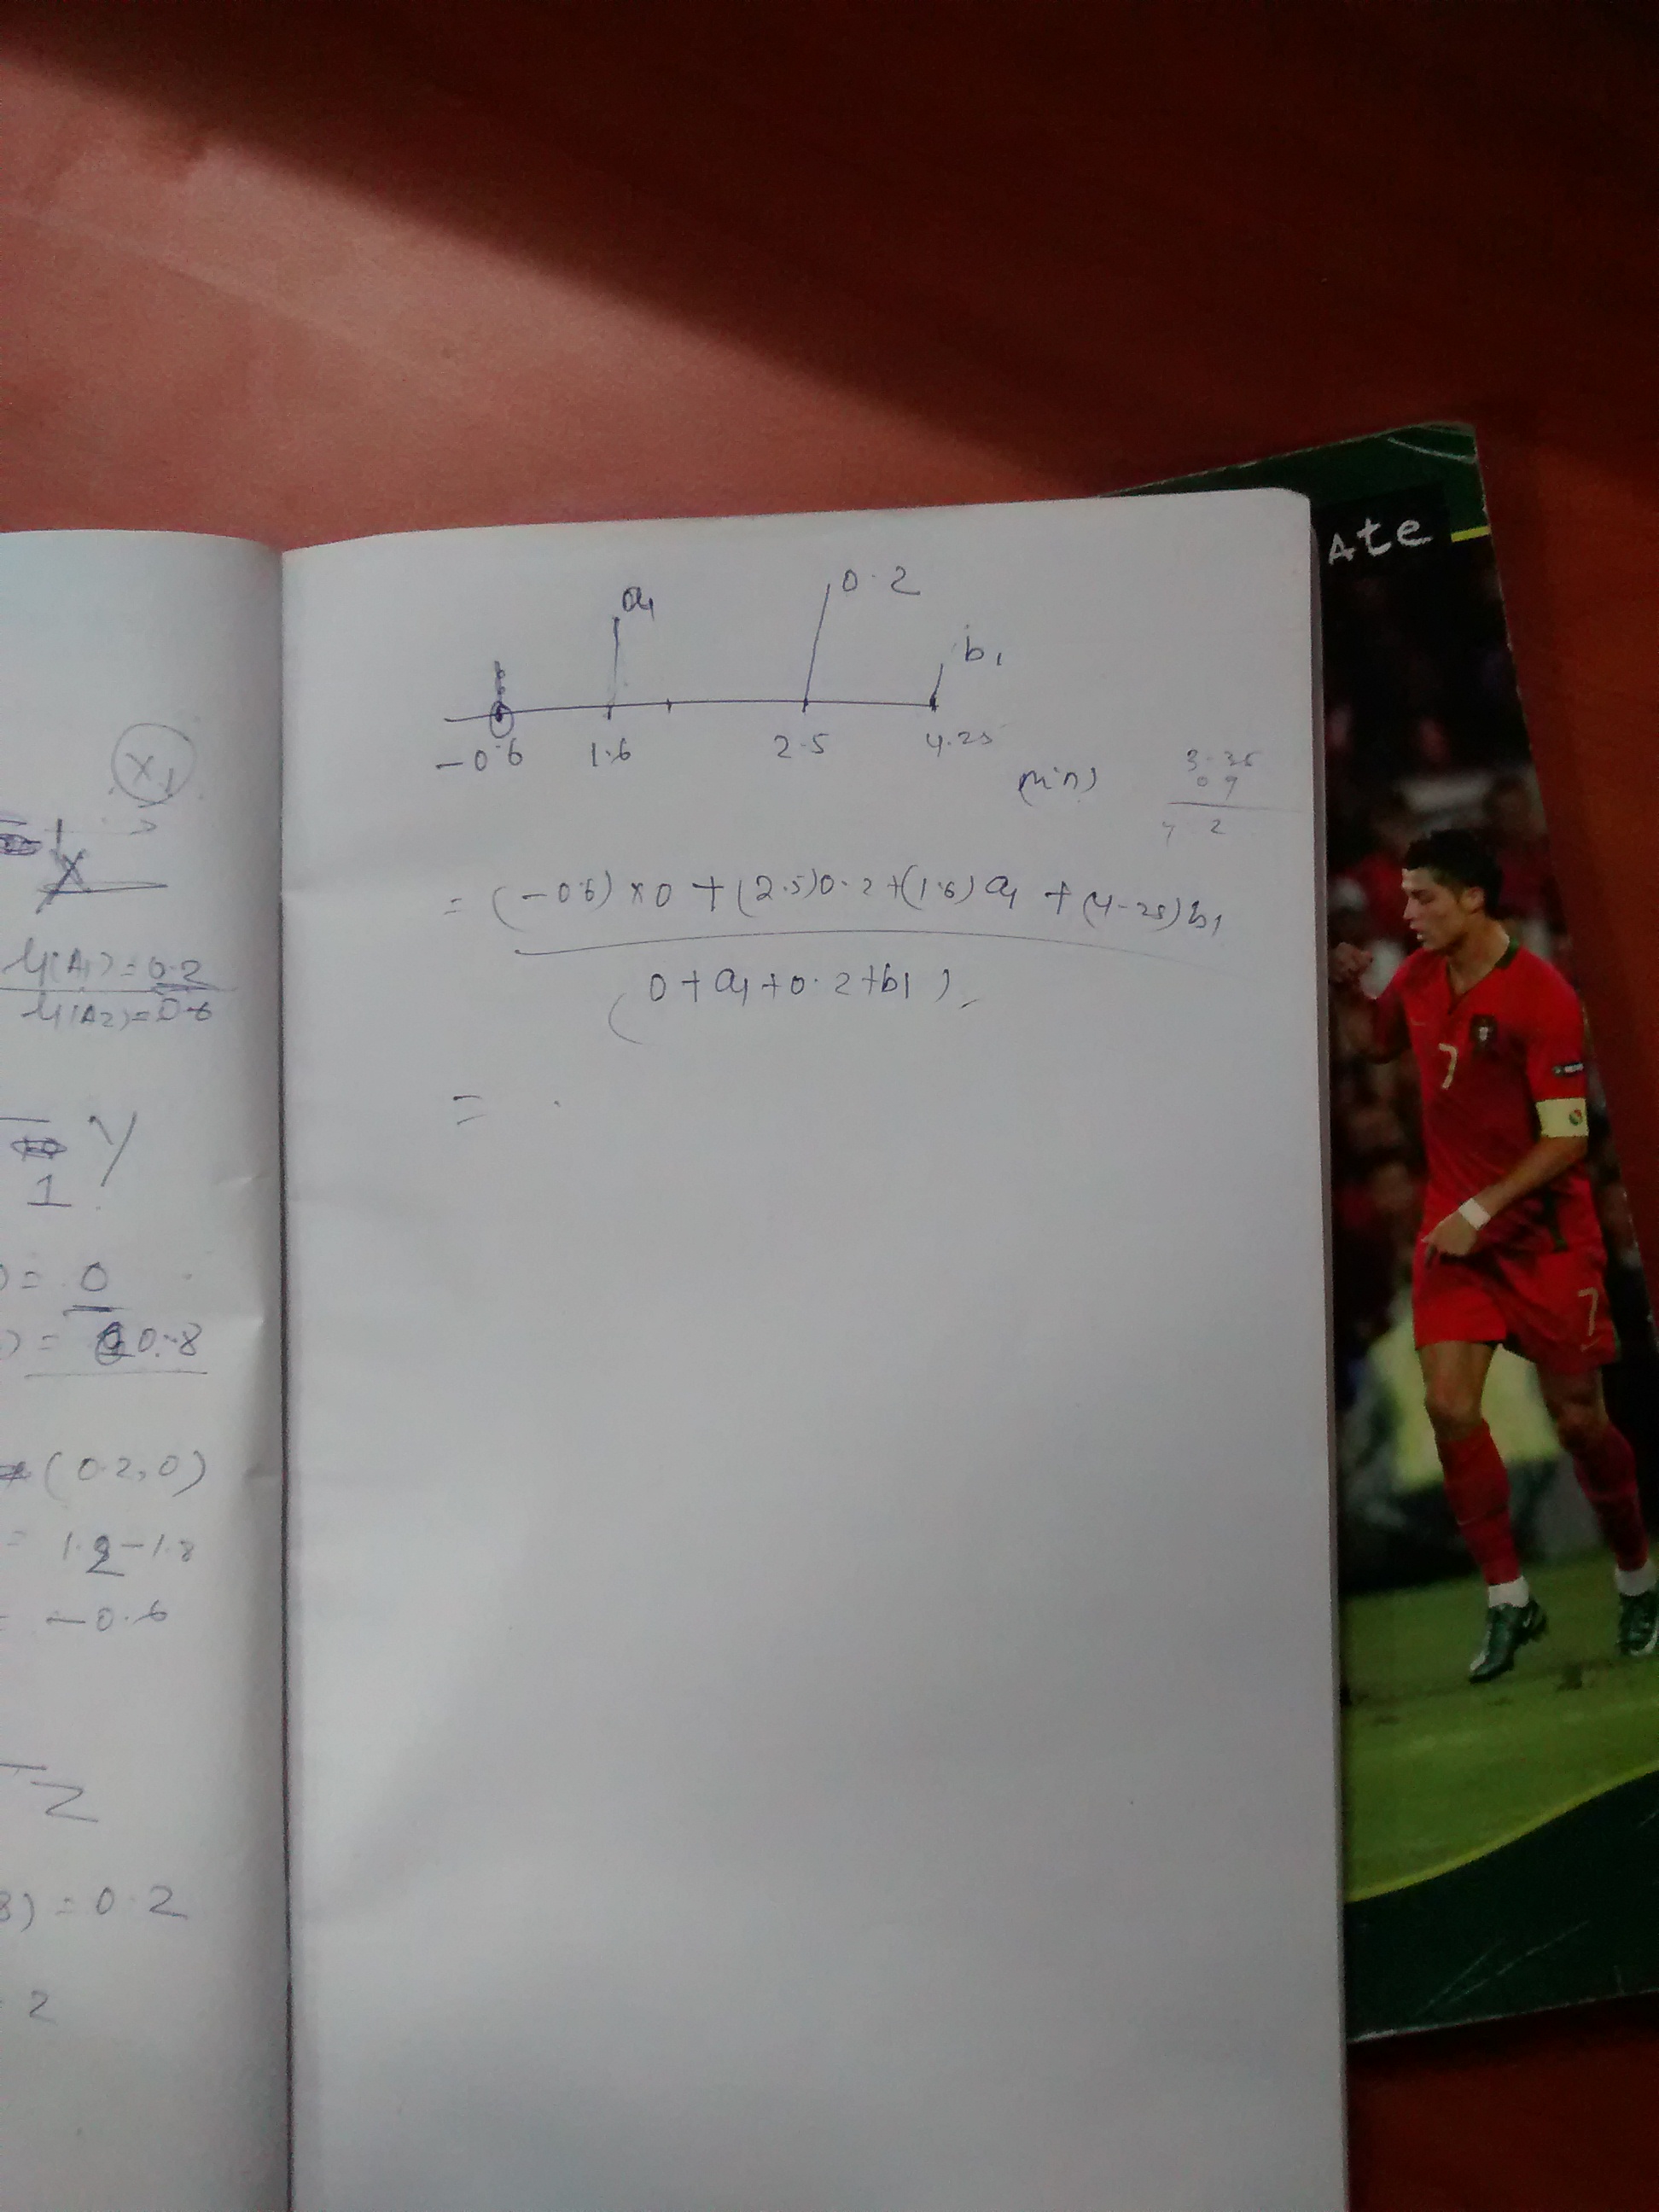 x1
X
μ(A1) = 0.2
μ(A2) = 0.6
Y
1
= 0
) = 0.8
(0.2, 0)
= 1.2 - 1.8
= -0.6
Z
) = 0.2
2
a1
0.2
b1
-0.6 1.6 2.5 4.25
(min)
= (-0.6) x 0 + (2.5)0.2 + (1.6) a1 + (4.25) b1
(0 + a1 + 0.2 + b1)
=
Ate
7
7